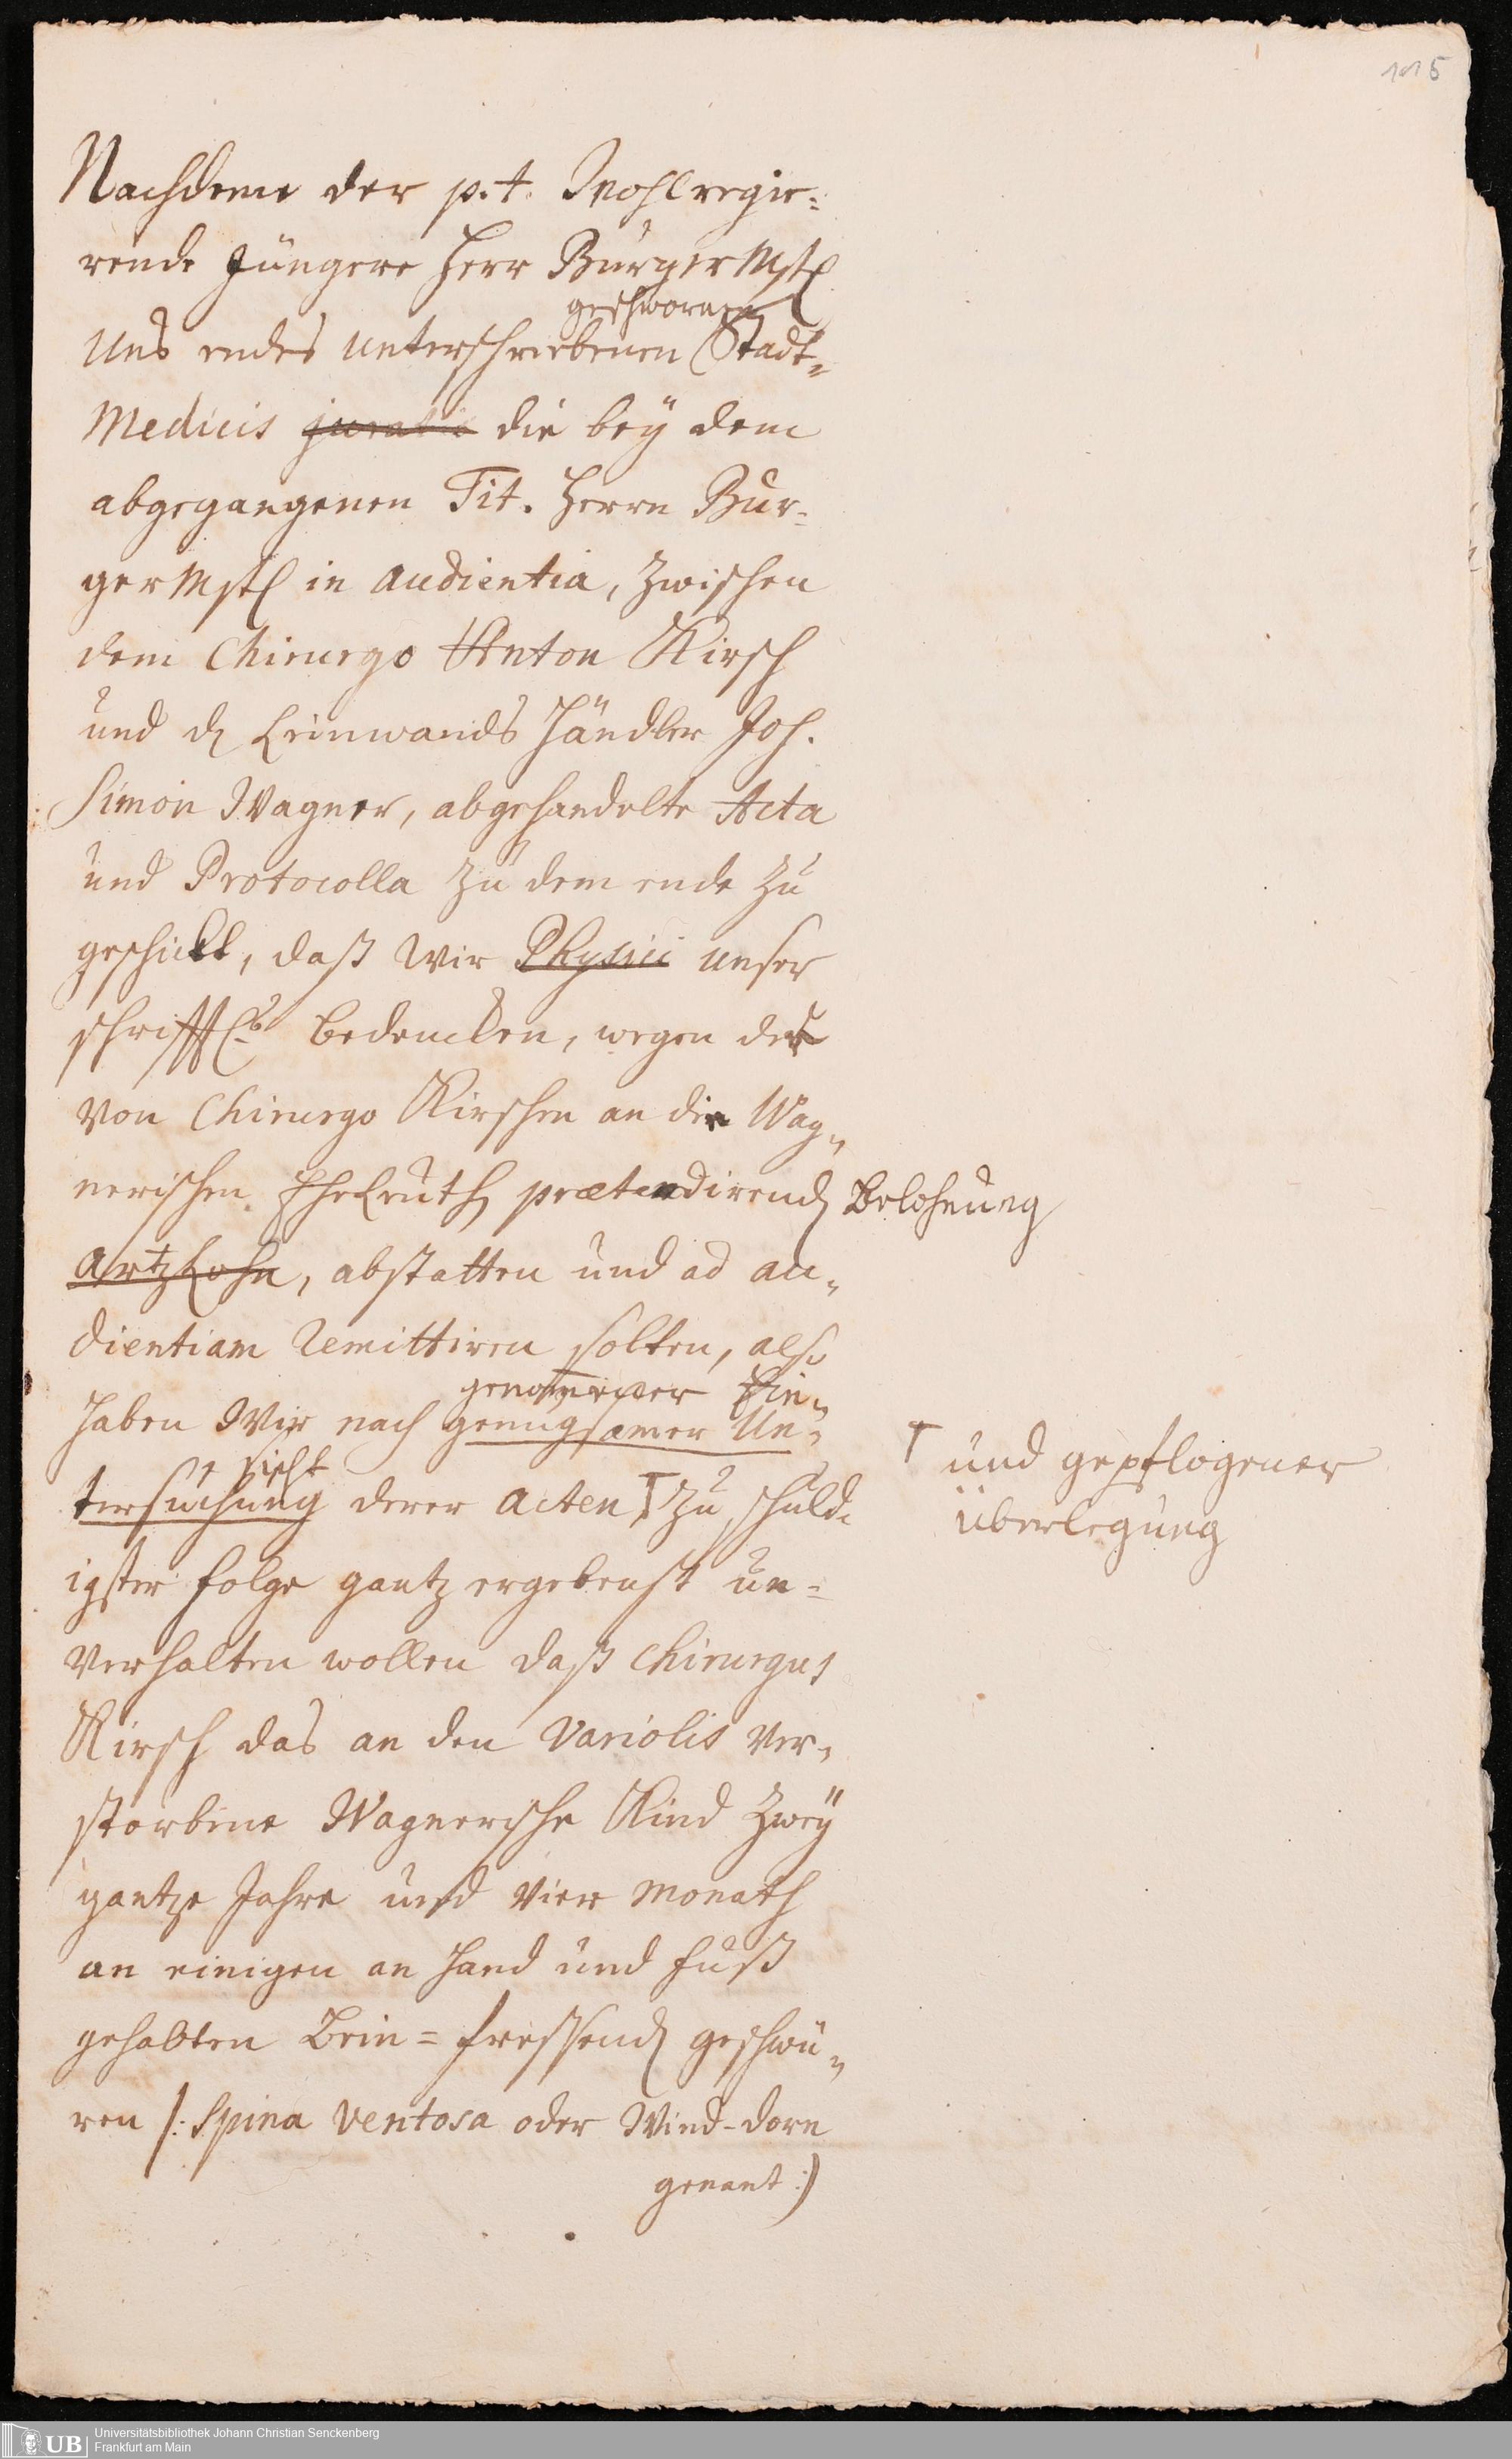 115
Nachdeme der p. t. Wohlregie=
rende Jüngere Herr BurgerMstr
geschwornen
Uns endes unterschriebenen Stadt=
Medicis juratis die bey dem
abgegangenen Tit. Herrn Bur=
gerMstr in audientia, zwischen
dem Chirurgo Anton Kirsch
und dem Leinwands Händler Joh.
Simon Wagner, abgehandelte Acta
und Protocolla zu dem ende zu
geschickt, daß wir Physici unser
schrifftl. bedencken, wegen der
von Chirurgo Kirschen an die Wag=
nerischen Eheleuth prætendirenden Belohnung
Artzlohn, abstatten und ad au=
dientiam remittiren solten, also
genommener Ein=
haben Wir nach genugsamer Un=
sicht
tersuchung derer Acten zu schuld=
und gepflogener
überlegung
igster folge gantz ergebenst un=
verhalten wollen daß Chirurgus
Kirsch das an den Variolis ver=
storbene Wagnerische Kind zwey
gantze Jahre und vier Monath
an einigen an Hand und Fuß
gehabten Bein=fressenden geschwü=
ren /: Spina ventosa oder Wind-dorn
genant :)
UB Universitätsbibliothek Johann Christian Senckenberg
Frankfurt am Main